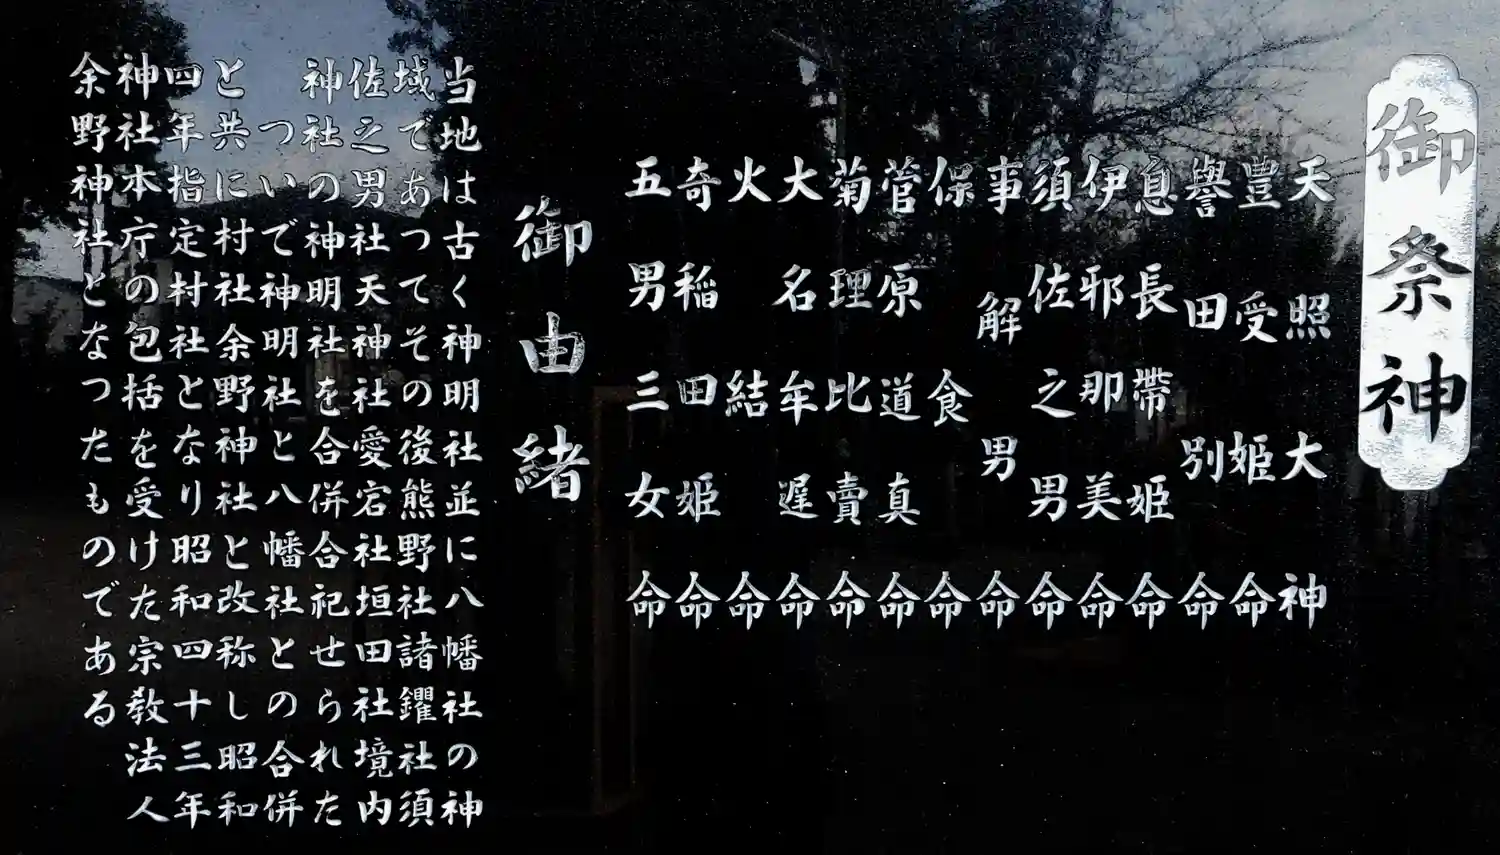 御祭神
天照大神
豊受姫命
譽田別命
息長帶姫命
伊邪那美命
須佐之男命
事解男命
保食命
菅原道真命
菊理比賣命
大名牟遅命
火結命
奇稲田姫命
五男三女命
御由緒
当地は古く神明社並に八幡社の神
域であつてその後熊野社諸鑺社須
佐之男社天神社愛宕社垣田社境内
神社の神明社を合併合祀せられた
ついで神明社と八幡社との合併
と共に村社余野神社と改称し昭和
四年指定村社となり昭和四十三年
神社本庁の包括を受けた宗教法人
余野神社となつたものである